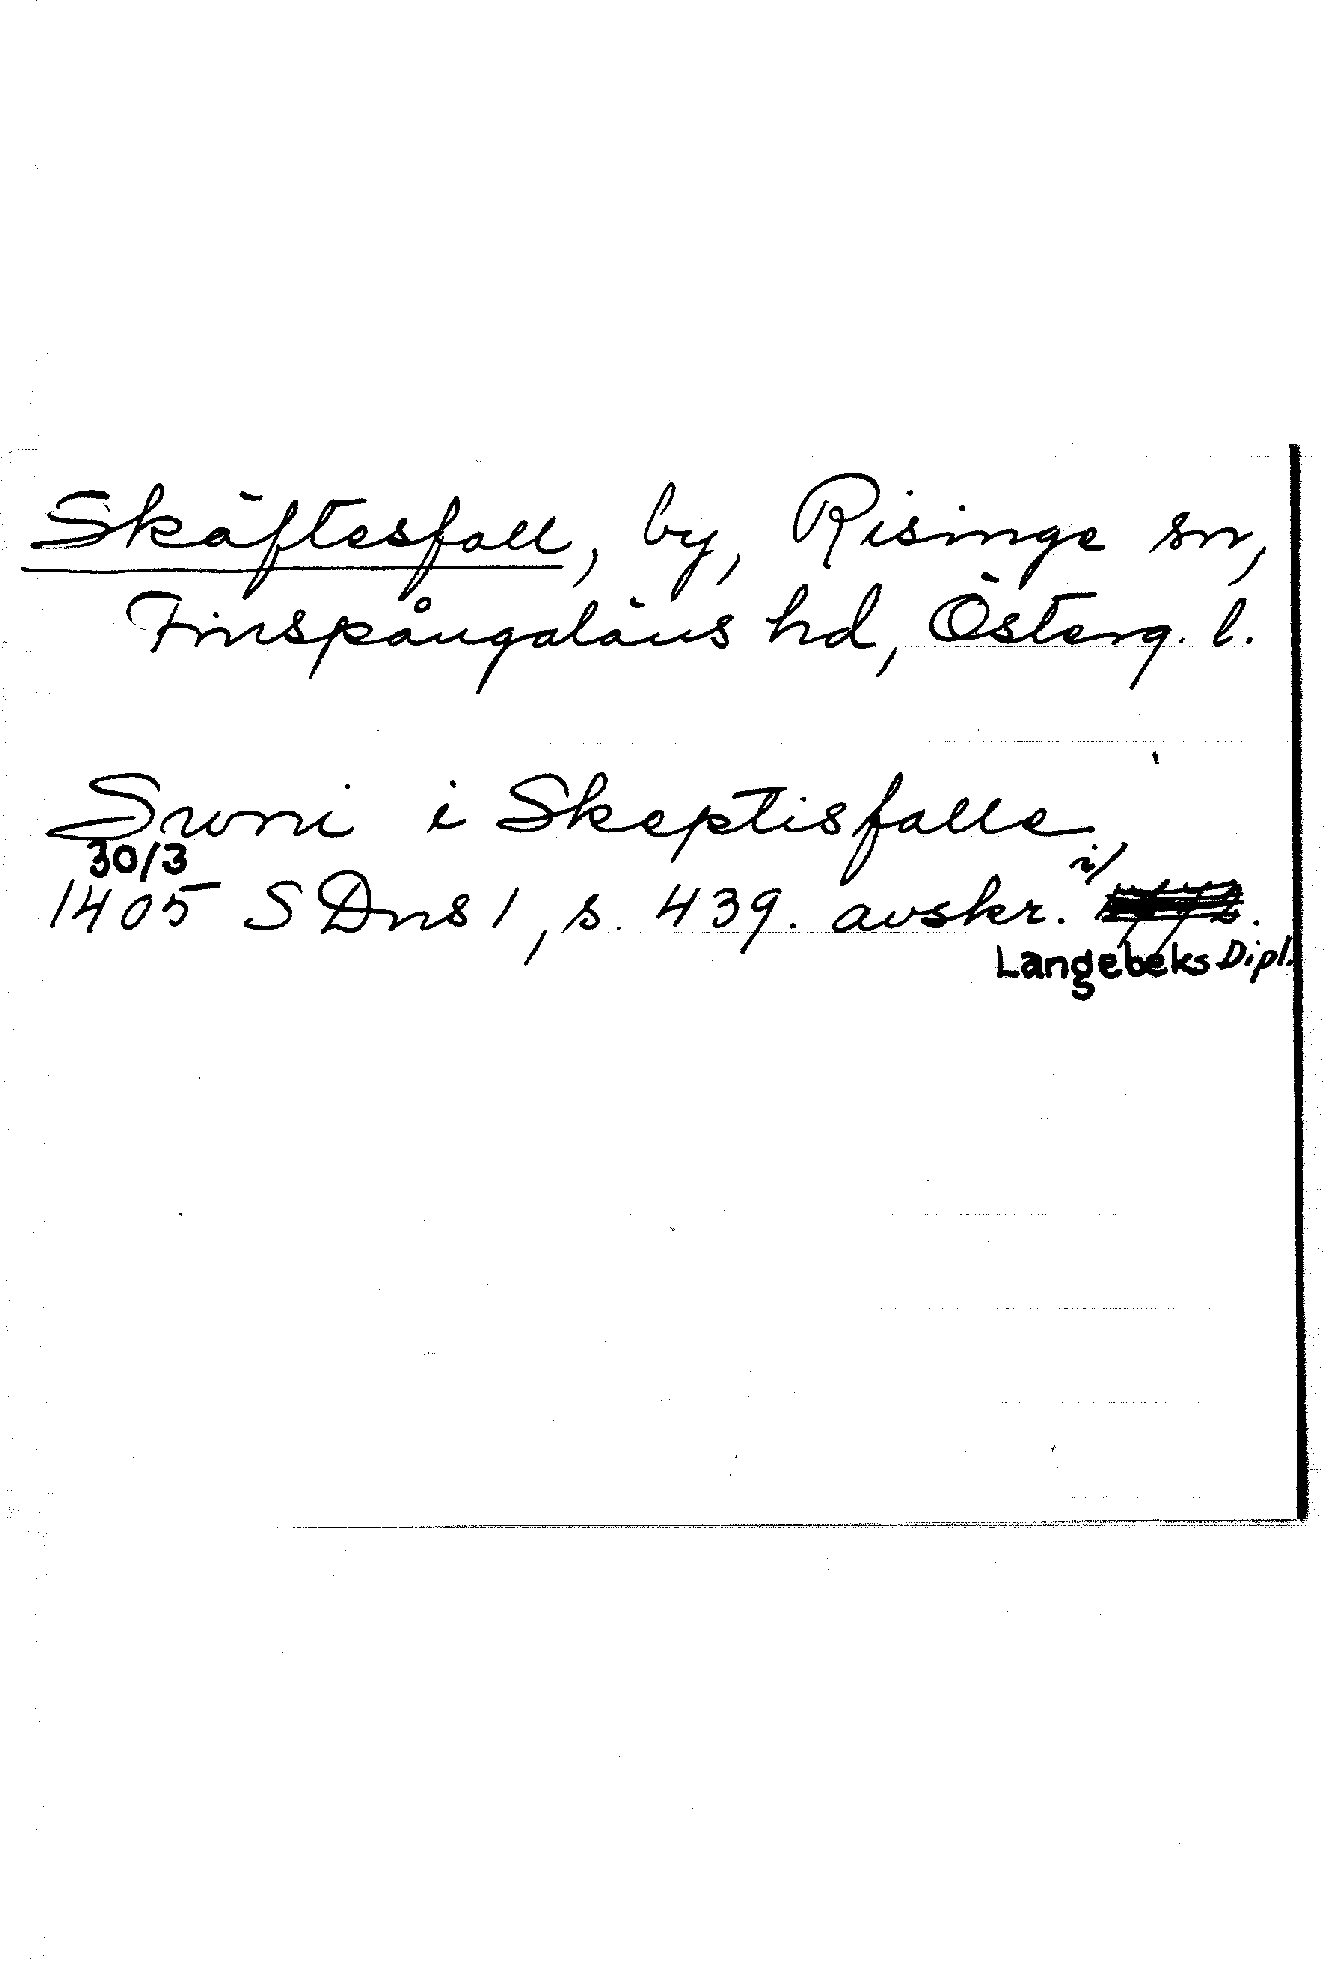 Skäftesfall, by, Risinge sn,
Finspångaläns hd, Österg. l.
Swni i Skeptisfalle
30/3
1405 SDns 1, s. 439. avskr. i
Langebeks Dipl.